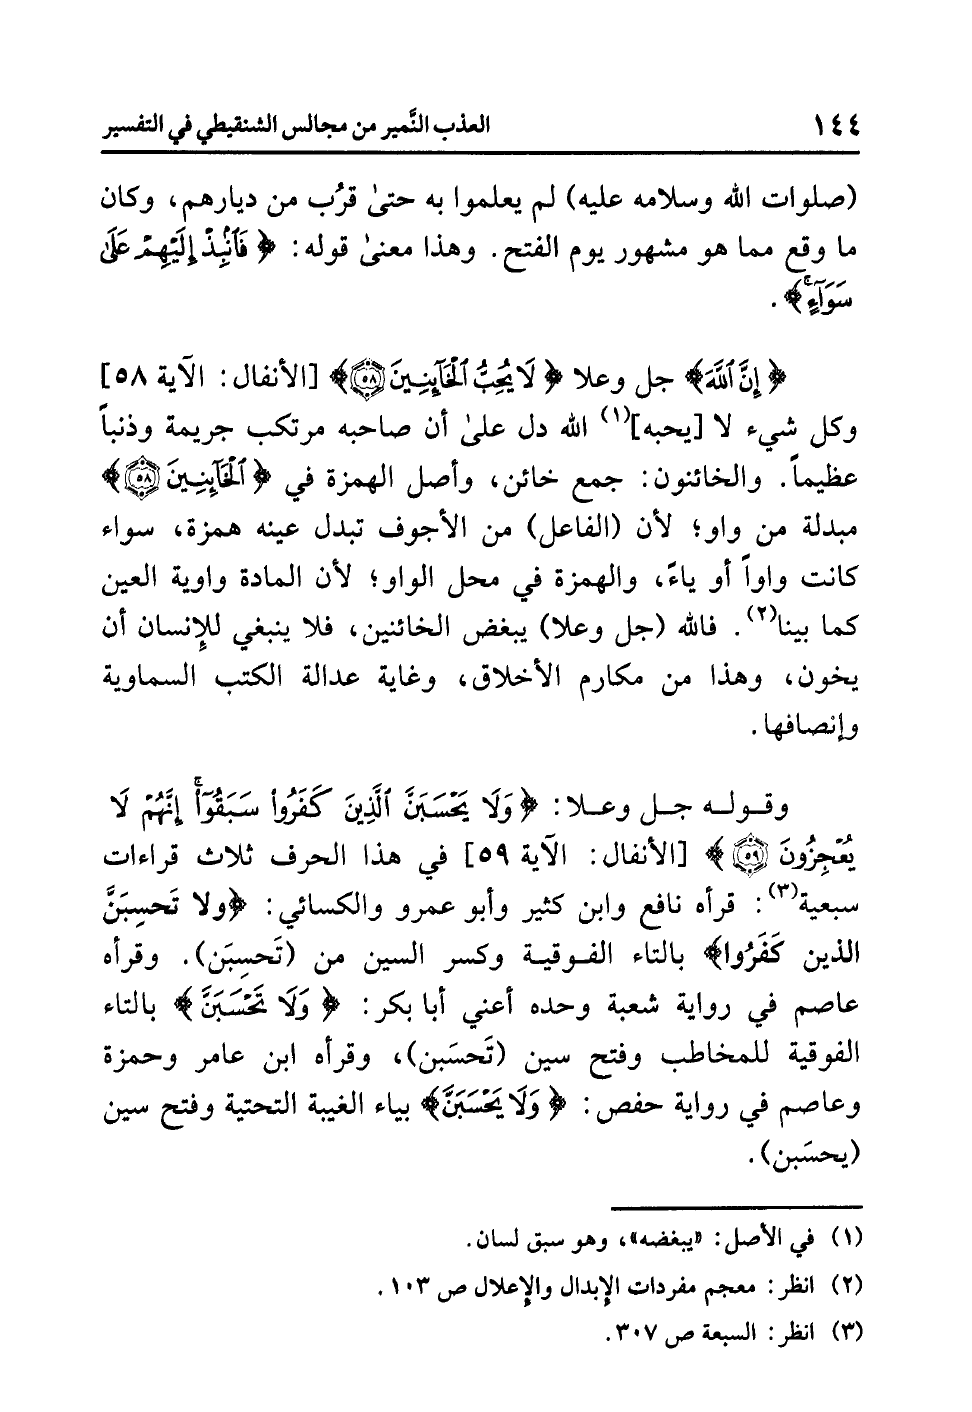 ١٤٤ العذب النَّمير من مجالس الشنقيطي في التفسير
(صلوات الله وسلامه عليه) لم يعلموا به حتىٰ قرُب من ديارهم، وكان
ما وقع مما هو مشهور يوم الفتح. وهذا معنىٰ قوله: ﴿فَٱنۢبِذْ إِلَيْهِمْ عَلَىٰ
سَوَآءٍ ۚ﴾.
﴿إِنَّ ٱللَّهَ﴾ جل وعلا ﴿لَا يُحِبُّ ٱلْخَآئِنِينَ ٥٨﴾ [الأنفال: الآية ٥٨]
وكل شيء لا [يحبه](١) الله دل علىٰ أن صاحبه مرتكب جريمة وذنباً
عظيماً. والخائنون: جمع خائن، وأصل الهمزة في ﴿ٱلْخَآئِنِينَ ٥٨﴾
مبدلة من واو؛ لأن (الفاعل) من الأجوف تبدل عينه همزة، سواء
كانت واواً أو ياءً، والهمزة في محل الواو؛ لأن المادة واوية العين
كما بينا(٢). فالله (جل وعلا) يبغض الخائنين، فلا ينبغي للإنسان أن
يخون، وهذا من مكارم الأخلاق، وغاية عدالة الكتب السماوية
وإنصافها.
وقوله جل وعلا: ﴿وَلَا يَحْسَبَنَّ ٱلَّذِينَ كَفَرُوا۟ سَبَقُوٓا۟ ۚ إِنَّهُمْ لَا
يُعْجِزُونَ ٥٩﴾ [الأنفال: الآية ٥٩] في هذا الحرف ثلاث قراءات
سبعية(٣): قرأه نافع وابن كثير وأبو عمرو والكسائي: ﴿ولا تَحسِبَنَّ
الذين كَفَرُوا﴾ بالتاء الفوقية وكسر السين من (تَحسِبَن). وقرأه
عاصم في رواية شعبة وحده أعني أبا بكر: ﴿وَلَا تَحْسَبَنَّ﴾ بالتاء
الفوقية للمخاطب وفتح سين (تَحسَبن)، وقرأه ابن عامر وحمزة
وعاصم في رواية حفص: ﴿وَلَا يَحْسَبَنَّ﴾ بياء الغيبة التحتية وفتح سين
(يحسَبن).
(١) في الأصل: «يبغضه»، وهو سبق لسان.
(٢) انظر: معجم مفردات الإبدال والإعلال ص ١٠٣.
(٣) انظر: السبعة ص ٣٠٧.